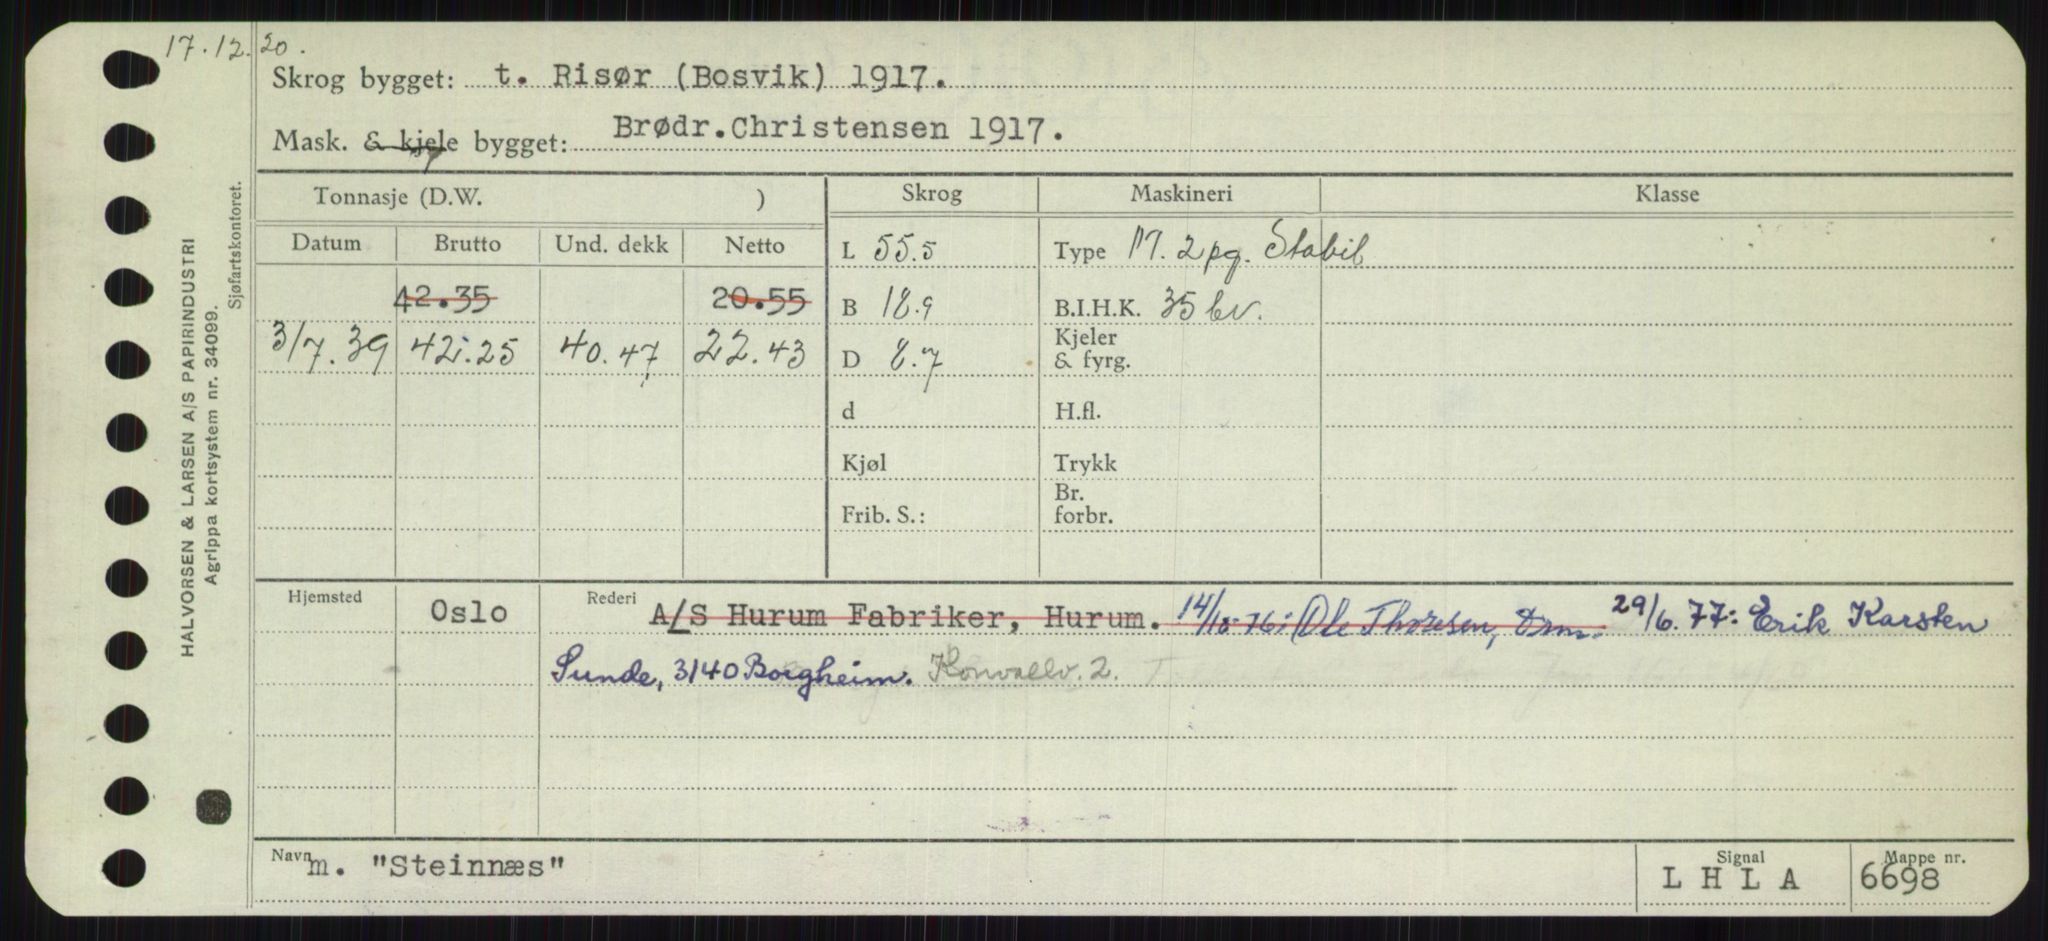 17.12.20.
Skrog bygget: t. Risør (Bosvik) 1917.
Mask. & kjele bygget: Brødr.Christensen 1917.
Tonnasje (D.W. ) Skrog Maskineri Klasse
Datum Brutto Und. dekk Netto
L 55.5 Type M. 2pg. Stabil
42.35 20.55 B 18.9 B.I.H.K. 35 bv.
3/7.39 42.25 40.47 22.43 D 8.7 Kjeler & fyrg.
d H.fl.
Kjøl Trykk
Frib. S.: Br. forbr.
Hjemsted Oslo Rederi A/S Hurum Fabriker, Hurum. 14/10-76: Ole Thoresen, Drm. 29/6.77: Erik Karsten
Sunde, 3140 Borgheim. Konvallv. 2.
Navn m. "Steinnæs" Signal L H L A Mappe nr. 6698
HALVORSEN & LARSEN A/S PAPIRINDUSTRI
Agrippa kortsystem nr. 34099.
Sjøfartskontoret.